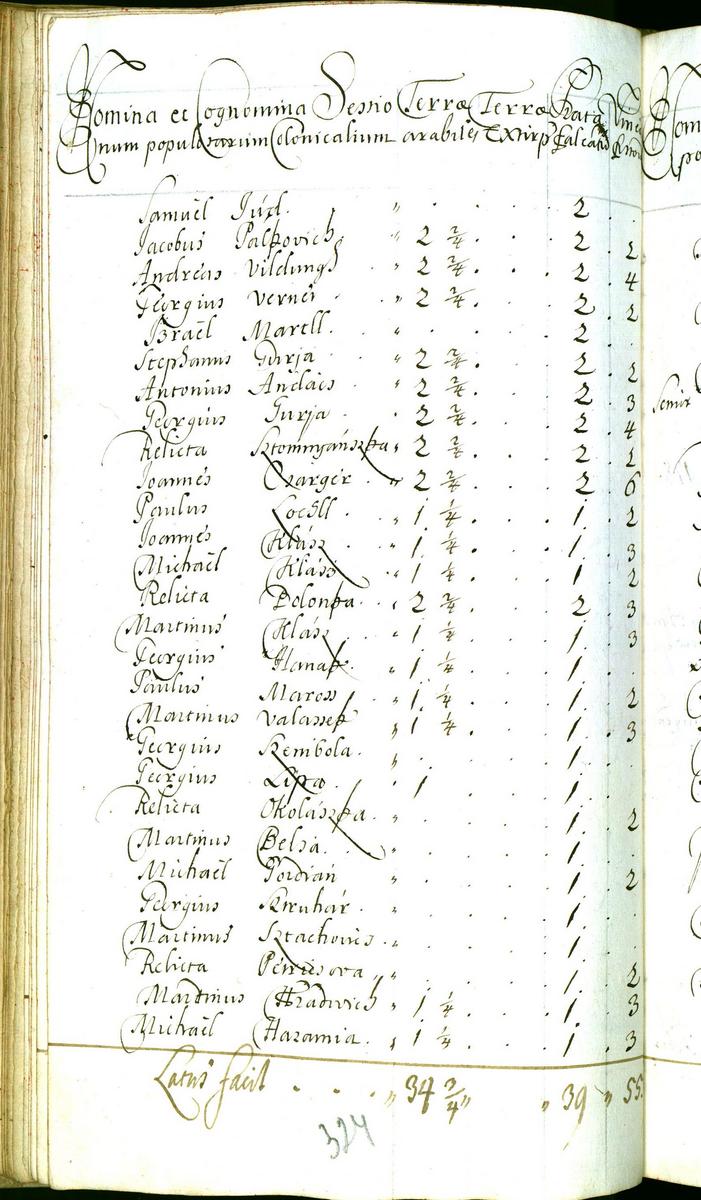 Nomina et Cognomina Sessio Terræ Terræ Prata
num popul Colonicalium arabiles Extirp Falcato
Samuel Jurl 2
Jacobus Palkovich 2 2/4 2 2
Andreas Vildungh 2 2/4 2 4
Georgius Verner 2 2/4 2 2
Israel Martll 2
Stephanus Gurja 2 2/4 2 2
Antonius 2 2/4 2 3
Georgius Gurja 2 2/4 2 4
Relicta 2 2/4 2 2
Joannes Czarger 2 2/4 2 6
Paulus 1 1/4 1 2
Joannes Klász 1 1/4 1 3
Michaël Klász 1 1/4 1 2
Relicta Polonka 2 2/4 2 3
Martinus Klász 1 1/4 1 3
Georgius Hanak 1 1/4 1
Paulus Maross 1 1/4 1 2
Martinus Valassek 1 1/4 1 3
Georgius Szembola 1
Georgius Lipa 1 1
Relicta Okolászka 1 2
Martinus Belsa 1
Michaël Pordián 1 2
Georgius Kruhár 1
Martinus Sztachovics 1
Relicta 1 2
Martinus Hradvich 1 1/4 1 3
Michaël Haramia 1 1/4 1 3
Latus facit 34 3/4 39 55
324
Senior